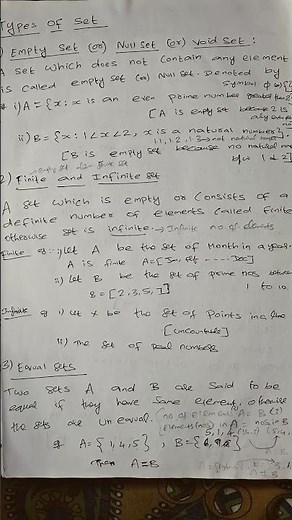 Types of set
1) Empty set (or) Null set (or) void set :
A set which does not contain any element
is called empty set (or) Null set. Denoted by
symbol ϕ
i) A = {x : x is an even prime number greater than 2}
[A is empty set because 2 is
ii) B = {x : 1 < x < 2, x is a natural number}
[B is empty set because no natural no
b/w 1 & 2]
2) Finite and Infinite set
A set which is empty or consists of a
definite number of elements called finite
otherwise set is infinite → Infinite no of elements
Finite eg :- i) Let A be the set of Month in a year.
A is finite A = [Jan, Feb ---- Dec]
ii) Let B be the set of prime nos between
B = [2, 3, 5, 7] 1 to 10
Infinite eg i) Let x be the set of Points in a line
[uncountable]
ii) The set of real numbers
3) Equal sets
Two sets A and B are said to be
equal if they have same element, otherwise
the sets are un equal.
eg A = {1, 4, 5}, B = {
Then A = B